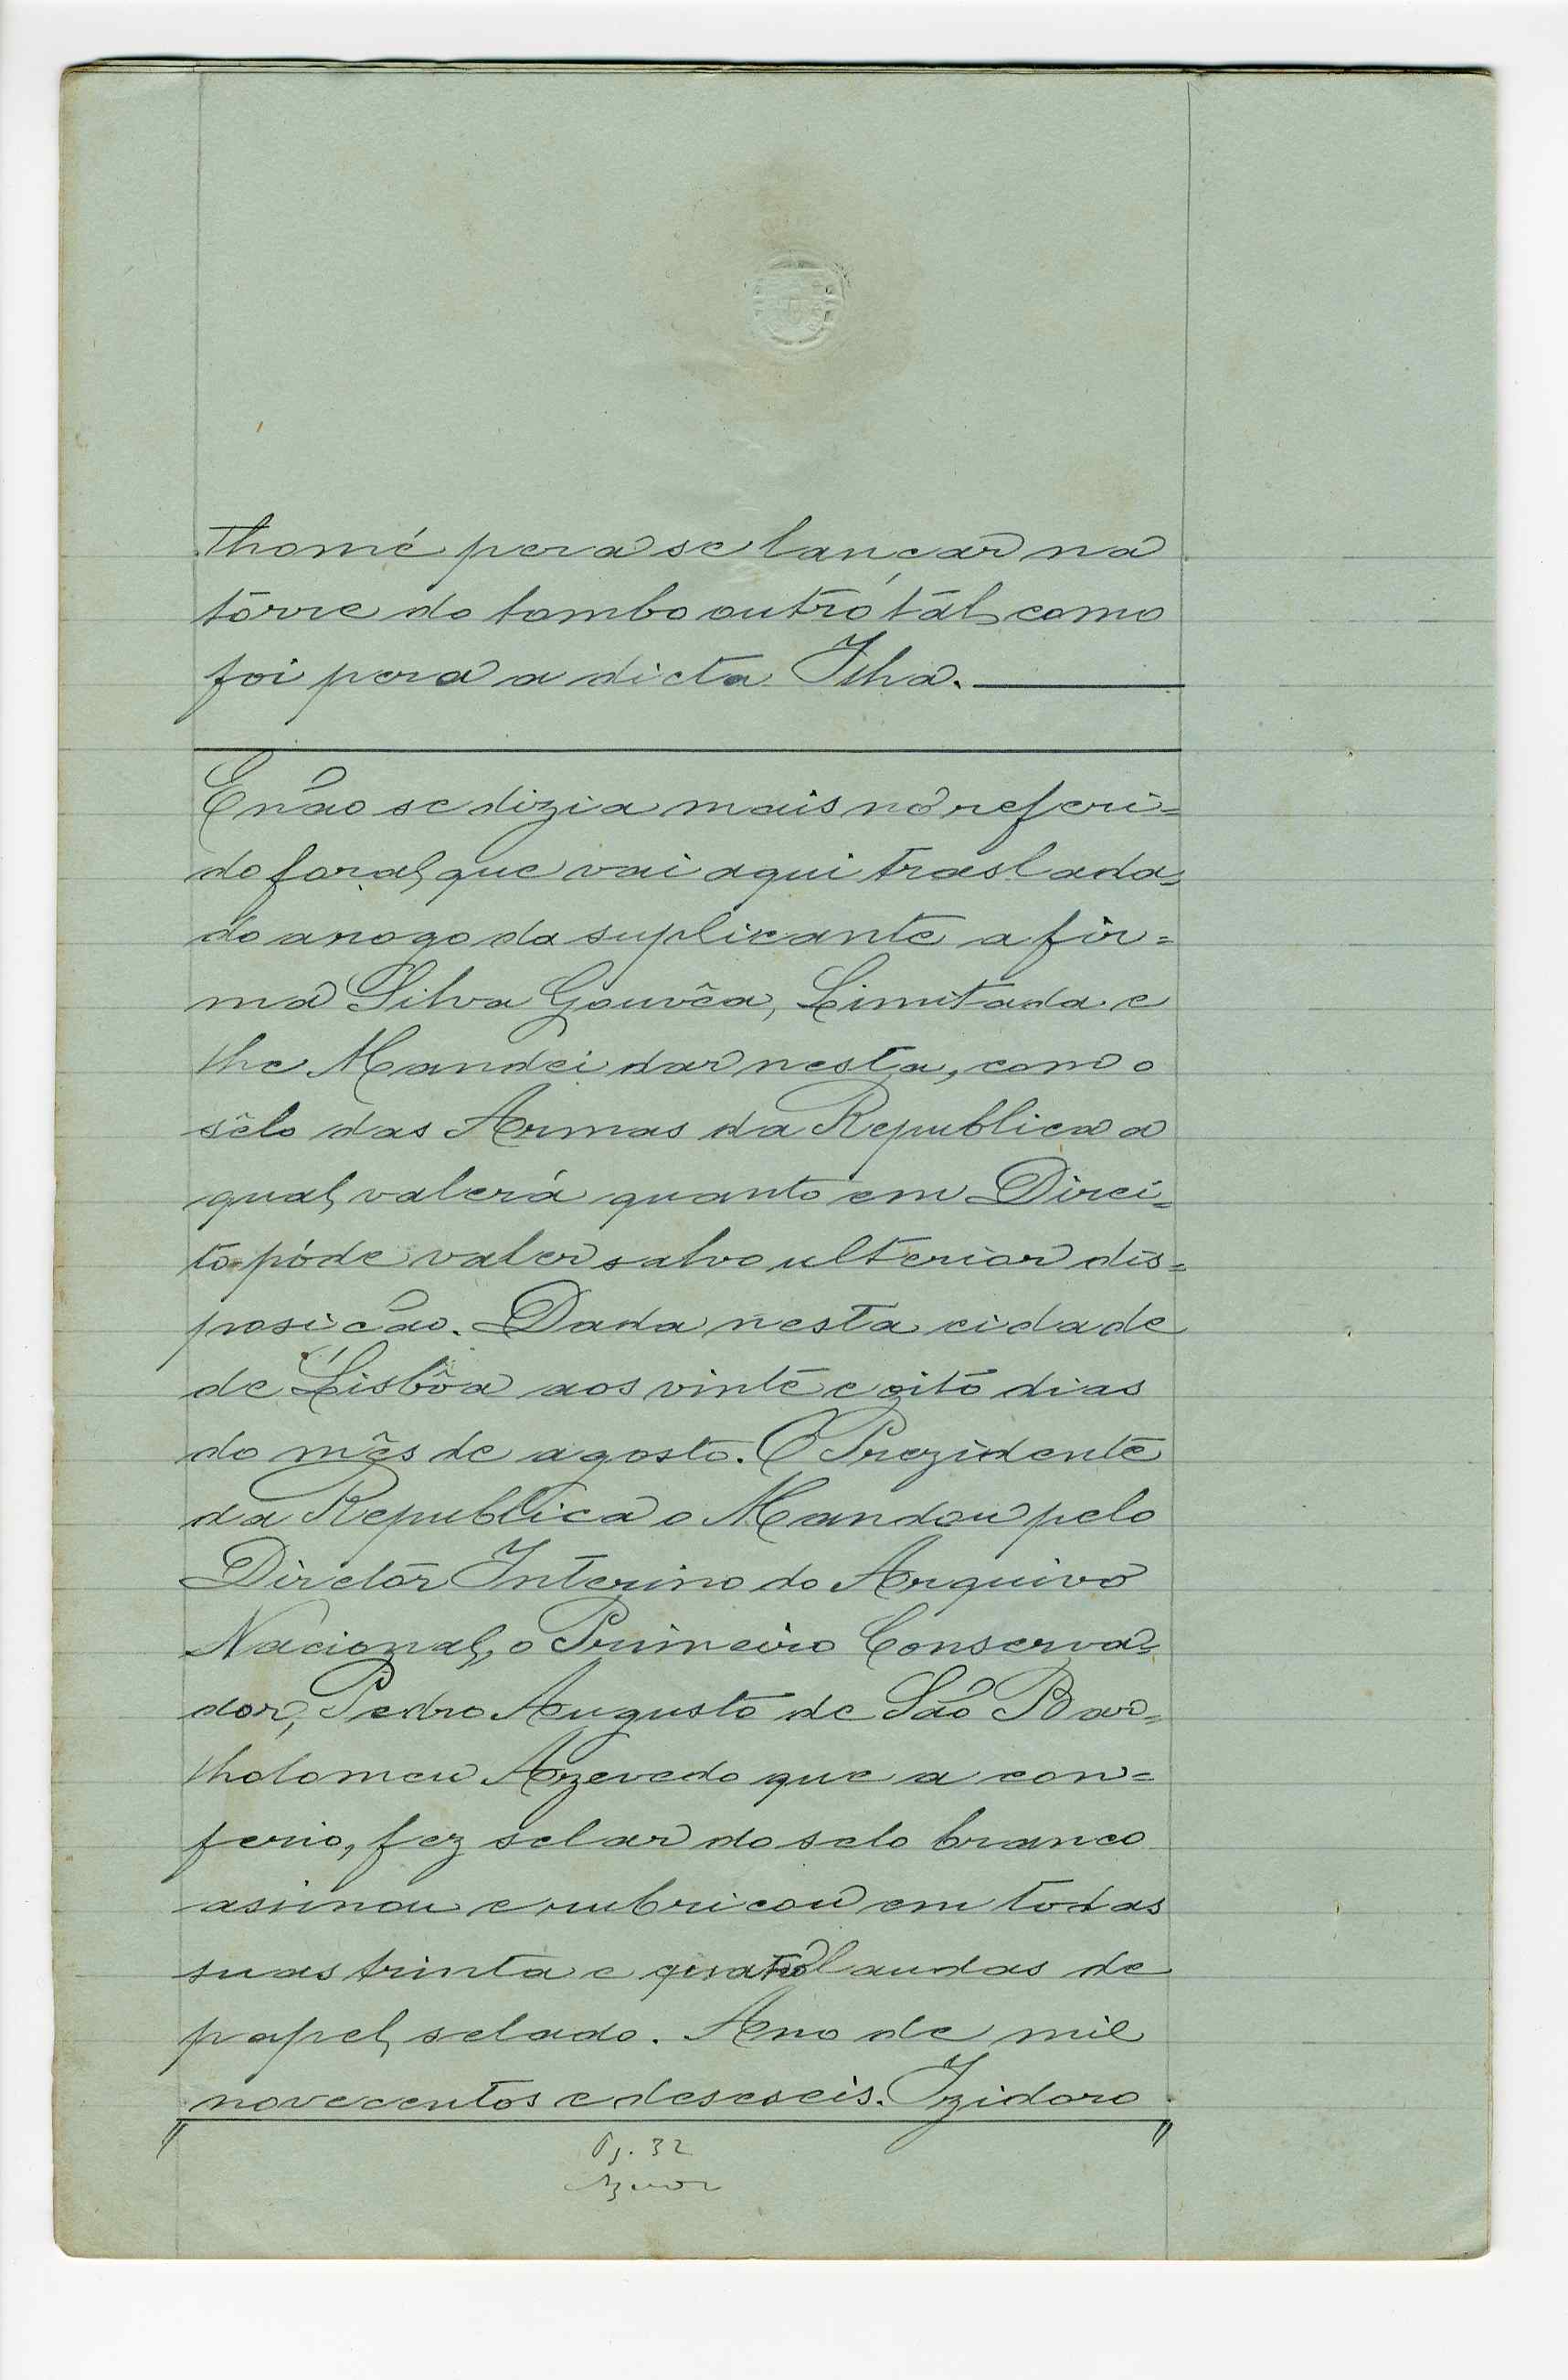 Thomé pera se lançar na
tôrre do tombo outro tál como
foi pera a dicta Ilha.
E não se dizia mais nó referi=
do foral, que vai aqui traslada=
do a rogo da suplicante a fir=
ma Silva Gouvêa, Limitada e
lhe Mandei dar nesta, com o
sêlo das Armas da Republica a
qual valerá quanto em Direi=
to póde valer salvo ulterior dis=
posição. Dada nesta cidade
de Lisbôa aos vinte e oito dias
do mês de agosto. O Prezidente
da Republica o Mandou pelo
Dirétor Interino do Arquivo
Nacional, o Primeiro Conserva=
dor, Pedro Augusto de São Bar=
tholomeu Azevedo que a con=
ferio, fez selar do selo branco
assinou e rubricou em todas
suas trinta e quatro laudas de
papel selado. Ano de mil
novecentos e deseseis. Izidoro
Pg. 32